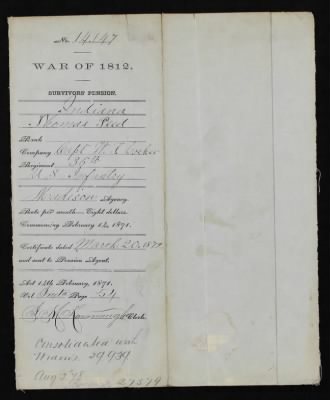 No. 14.147
WAR OF 1812.
SURVIVORS' PENSION.
Indiana
Thomas Peed
Rank
Company Capt W. C.
Regiment 35th
U S Infantry
Madison Agency.
Rate per month, Eight dollars.
Commencing February 14, 1871.
Certificate dated March 20 1872
and sent to Pension Agent.
Act 14th February, 1871.
Vol Page 54
Clerk.
Consolidated with
29939
Aug 2 '78
27579